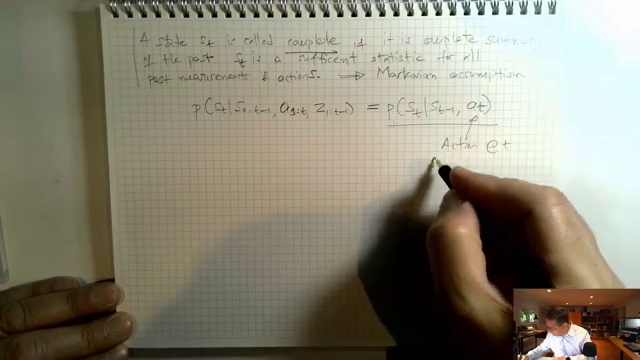 A state St is called complete if it is complete summary
of the past St is a sufficent statistic for all
past measurements & actions. ⟹ Markovian assumption
p(St|S0:t-1, a1:t, z1:t-1) = p(St|St-1, at)
Action @ t